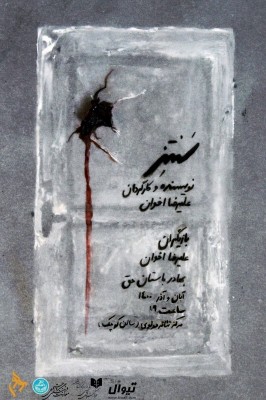 سَنتِز
نویسنده و کارگردان
علیرضا اخوان
بازیگران
علیرضا اخوان
بهادر باستان حق
آبان و آذر ۱۴۰۰
ساعت ۱۹
مرکز تئاتر مولوی (سالن کوچک)
تیوال